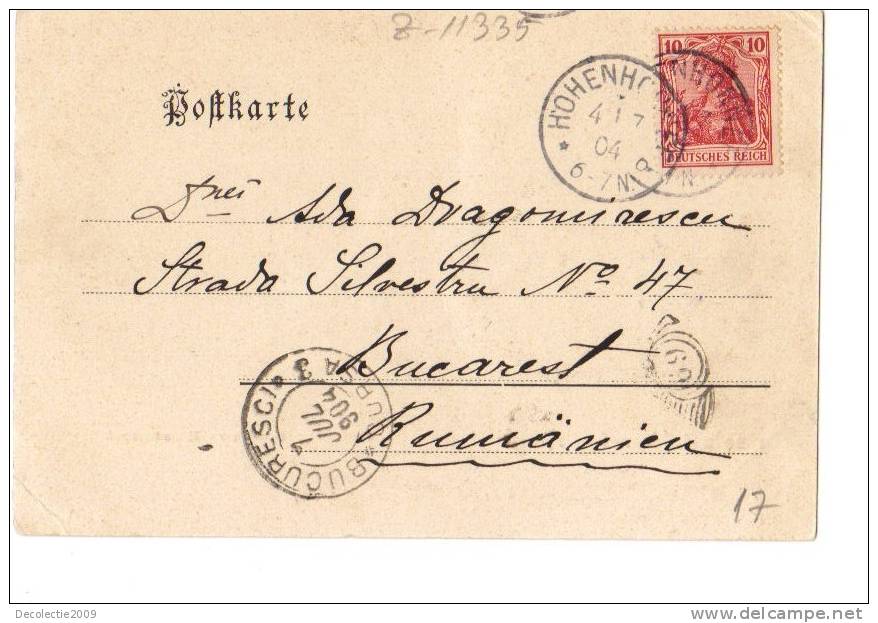 Z-11335
Postkarte
10 10
DEUTSCHES REICH
* HOHENHO
4 7
04
6-7N.
Dnei Ada Dragomirescu
Strada Silvestru No 47
Bucarest
Rumänien
* BUCURESCI *
JUL
904
69
17
Decolectie2009
www.delcampe.net